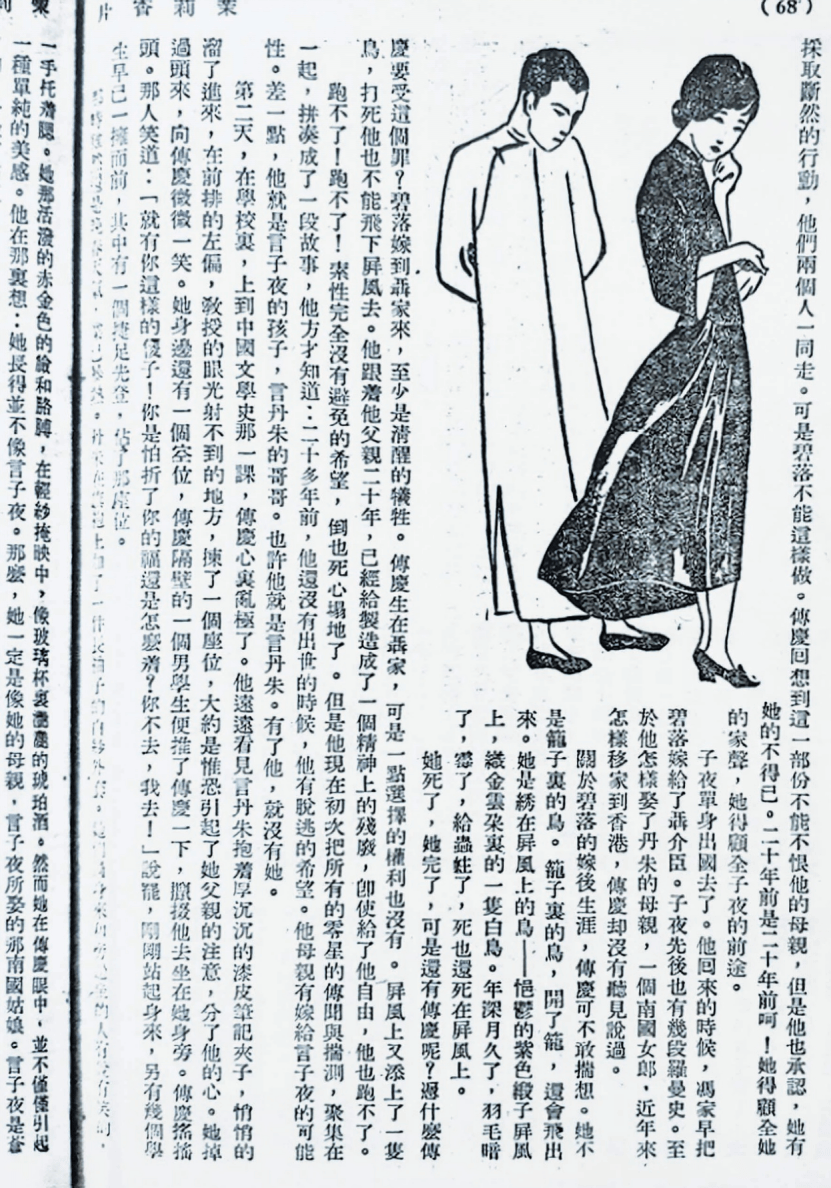 （68）
茉莉香片
採取斷然的行動，他們兩個人一同走。可是碧落不能這樣做。傳慶回想到這一部份不能不恨他的母親，但是他也承認，她有
她的不得已。二十年前是二十年前呵！她得顧全她
的家聲，她得顧全子夜的前途。
子夜單身出國去了。他回來的時候，馮家早把
碧落嫁給了聶介臣。子夜先後也有幾段羅曼史。至
於他怎樣娶了丹朱的母親，一個南國女郎，近年來
怎樣移家到香港，傳慶却沒有聽見說過。
關於碧落的嫁後生涯，傳慶可不敢揣想。她不
是籠子裏的鳥。籠子裏的鳥，開了籠，還會飛出
來。她是綉在屏風上的鳥——悒鬱的紫色緞子屏風
上，織金雲朶裏的一隻白鳥。年深月久了，羽毛暗
了，霉了，給蟲蛀了，死也還死在屏風上。
她死了，她完了，可是還有傳慶呢？憑什麼傳
慶要受這個罪？碧落嫁到聶家來，至少是清醒的犧牲。傳慶生在聶家，可是一點選擇的權利也沒有。屏風上又添上了一隻
鳥，打死他也不能飛下屏風去。他跟着他父親二十年，已經給製造成了一個精神上的殘廢，卽使給了他自由，他也跑不了。
跑不了！跑不了！索性完全沒有避免的希望，倒也死心塌地了。但是他現在初次把所有的零星的傳聞與揣測，聚集在
一起，拼凑成了一段故事，他方才知道：二十多年前，他還沒有出世的時候，他有脫逃的希望。他母親有嫁給言子夜的可能
性。差一點，他就是言子夜的孩子，言丹朱的哥哥。也許他就是言丹朱。有了他，就沒有她。
第二天，在學校裏，上到中國文學史那一課，傳慶心裏亂極了。他遠遠看見言丹朱抱着厚沉沉的漆皮筆記夾子，悄悄的
溜了進來，在前排的左偏，敎授的眼光射不到的地方，揀了一個座位，大約是惟恐引起了她父親的注意，分了他的心。她掉
過頭來，向傳慶微微一笑。她身邊還有一個空位，傳慶隔壁的一個男學生便推了傳慶一下，攛掇他去坐在她身旁。傳慶搖搖
頭。那人笑道：「就有你這樣的傻子！你是怕折了你的福還是怎麼着？你不去，我去！」說罷，剛剛站起身來，另有幾個學
生早已一擁而前，其中有一個捷足先登，佔了那座位。
一手托着腮。她那活潑的赤金色的臉和胳膊，在輕紗掩映中，像玻璃杯裏灩灩的琥珀酒。然而她在傳慶眼中，並不僅僅引起
一種單純的美感。他在那裏想：她長得並不像言子夜。那麼，她一定是像她的母親，言子夜所娶的那南國姑娘。言子夜是蒼